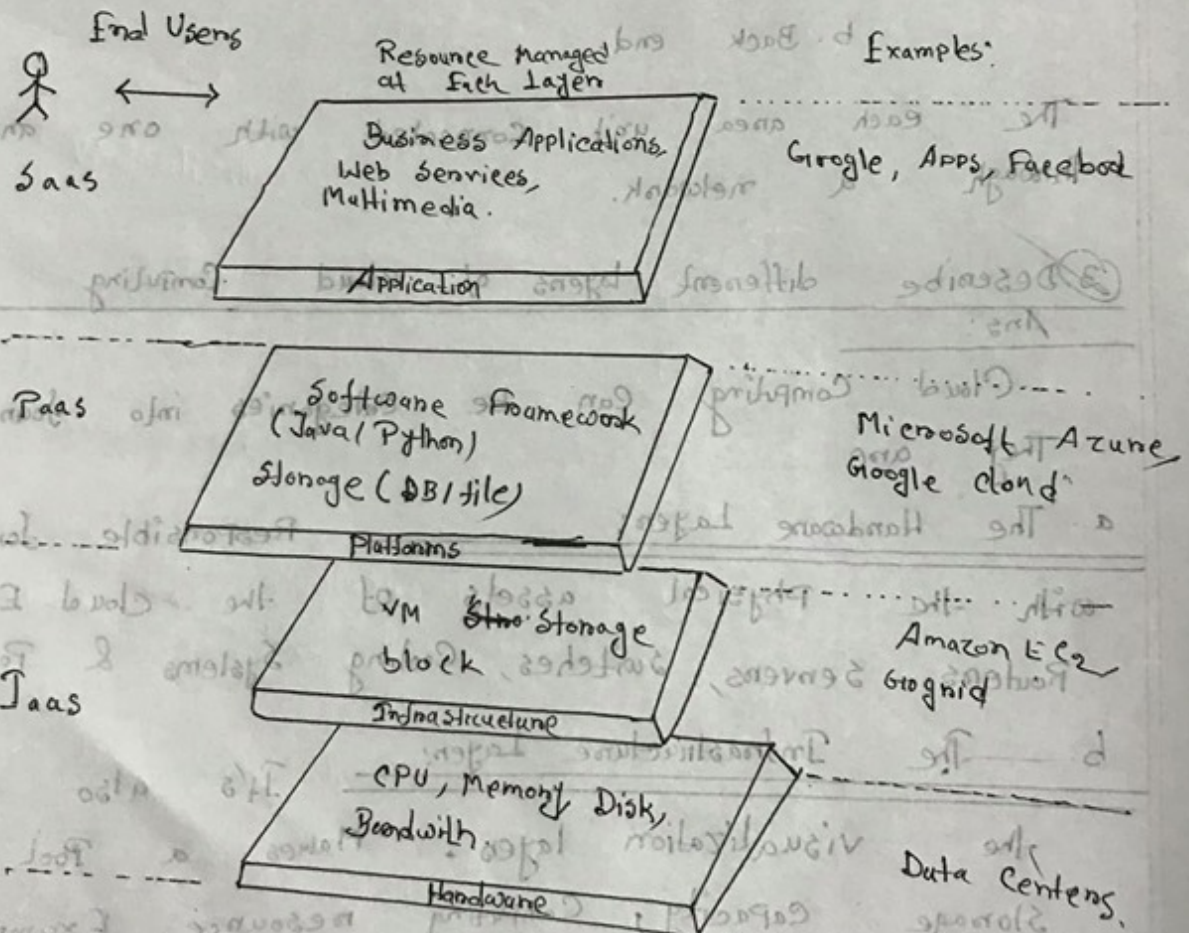 End Users
Resource Managed
at Each Layer
Examples:
SaaS
Business Applications,
Web Services,
Multimedia.
Application
Google, Apps, Facebook
PaaS
Software Framework
(Java/Python)
Storage (DB/file)
Platforms
Microsoft Azure,
Google cloud
IaaS
VM Storage
block
Infrastructure
Amazon EC2,
Gogrid
CPU, Memory Disk,
Bandwith
Hardware
Data Centers.